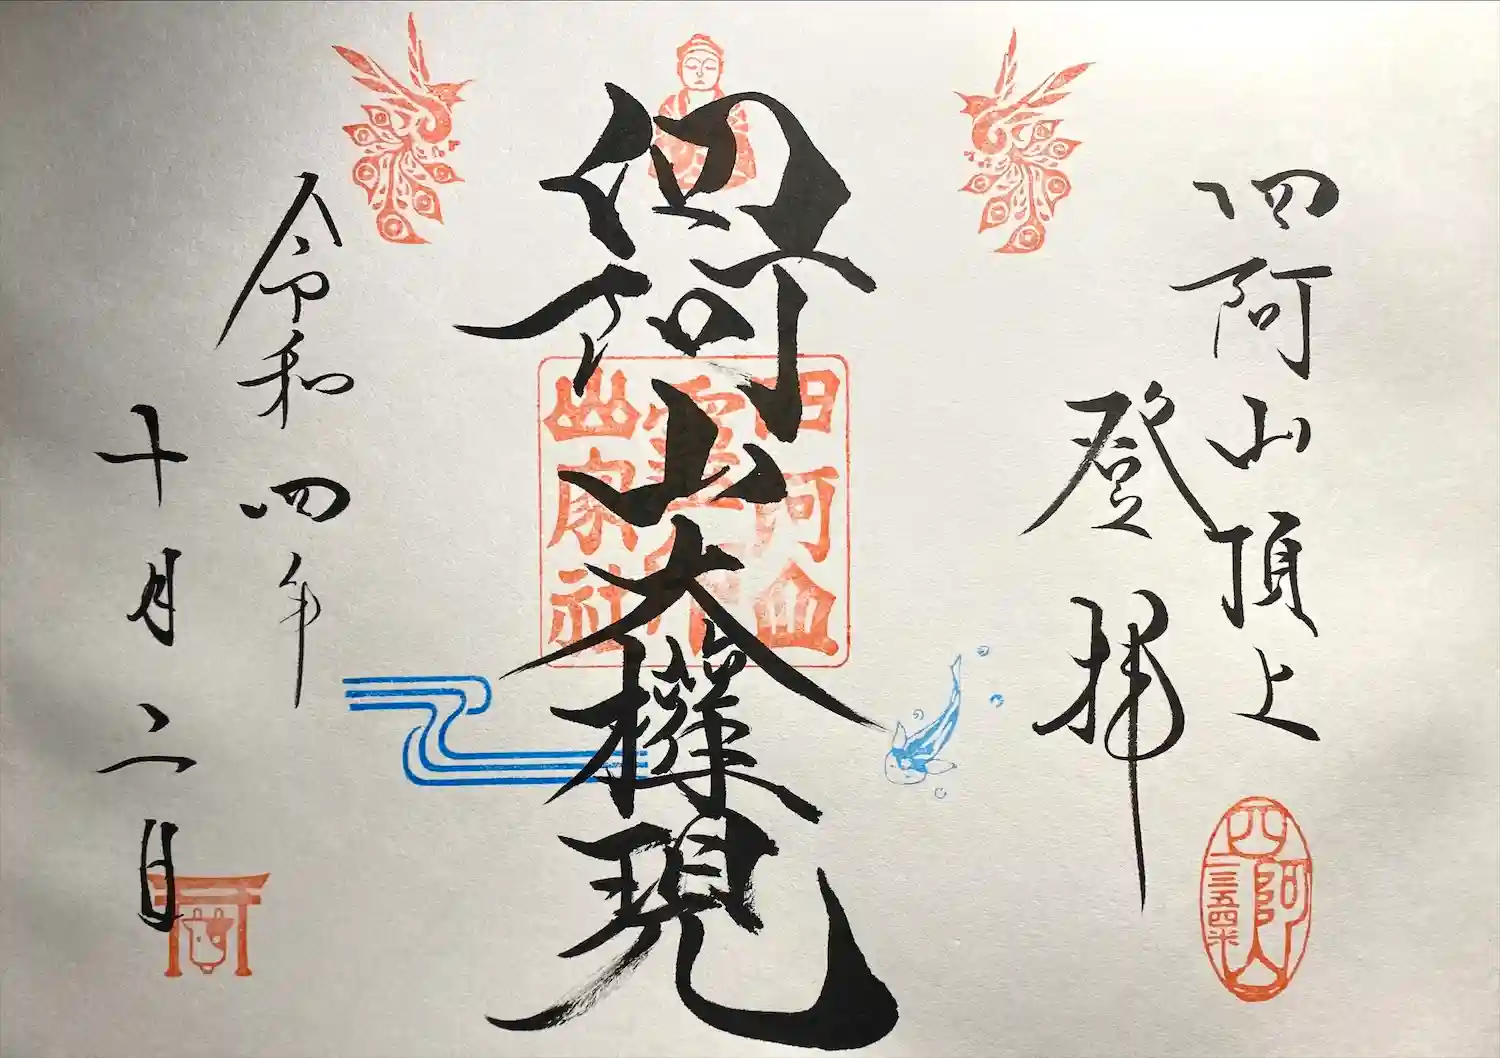 四阿山頂上
登拝
山大權現
四阿山
山家社
令和四年
十月二日
四阿山
二三五四米